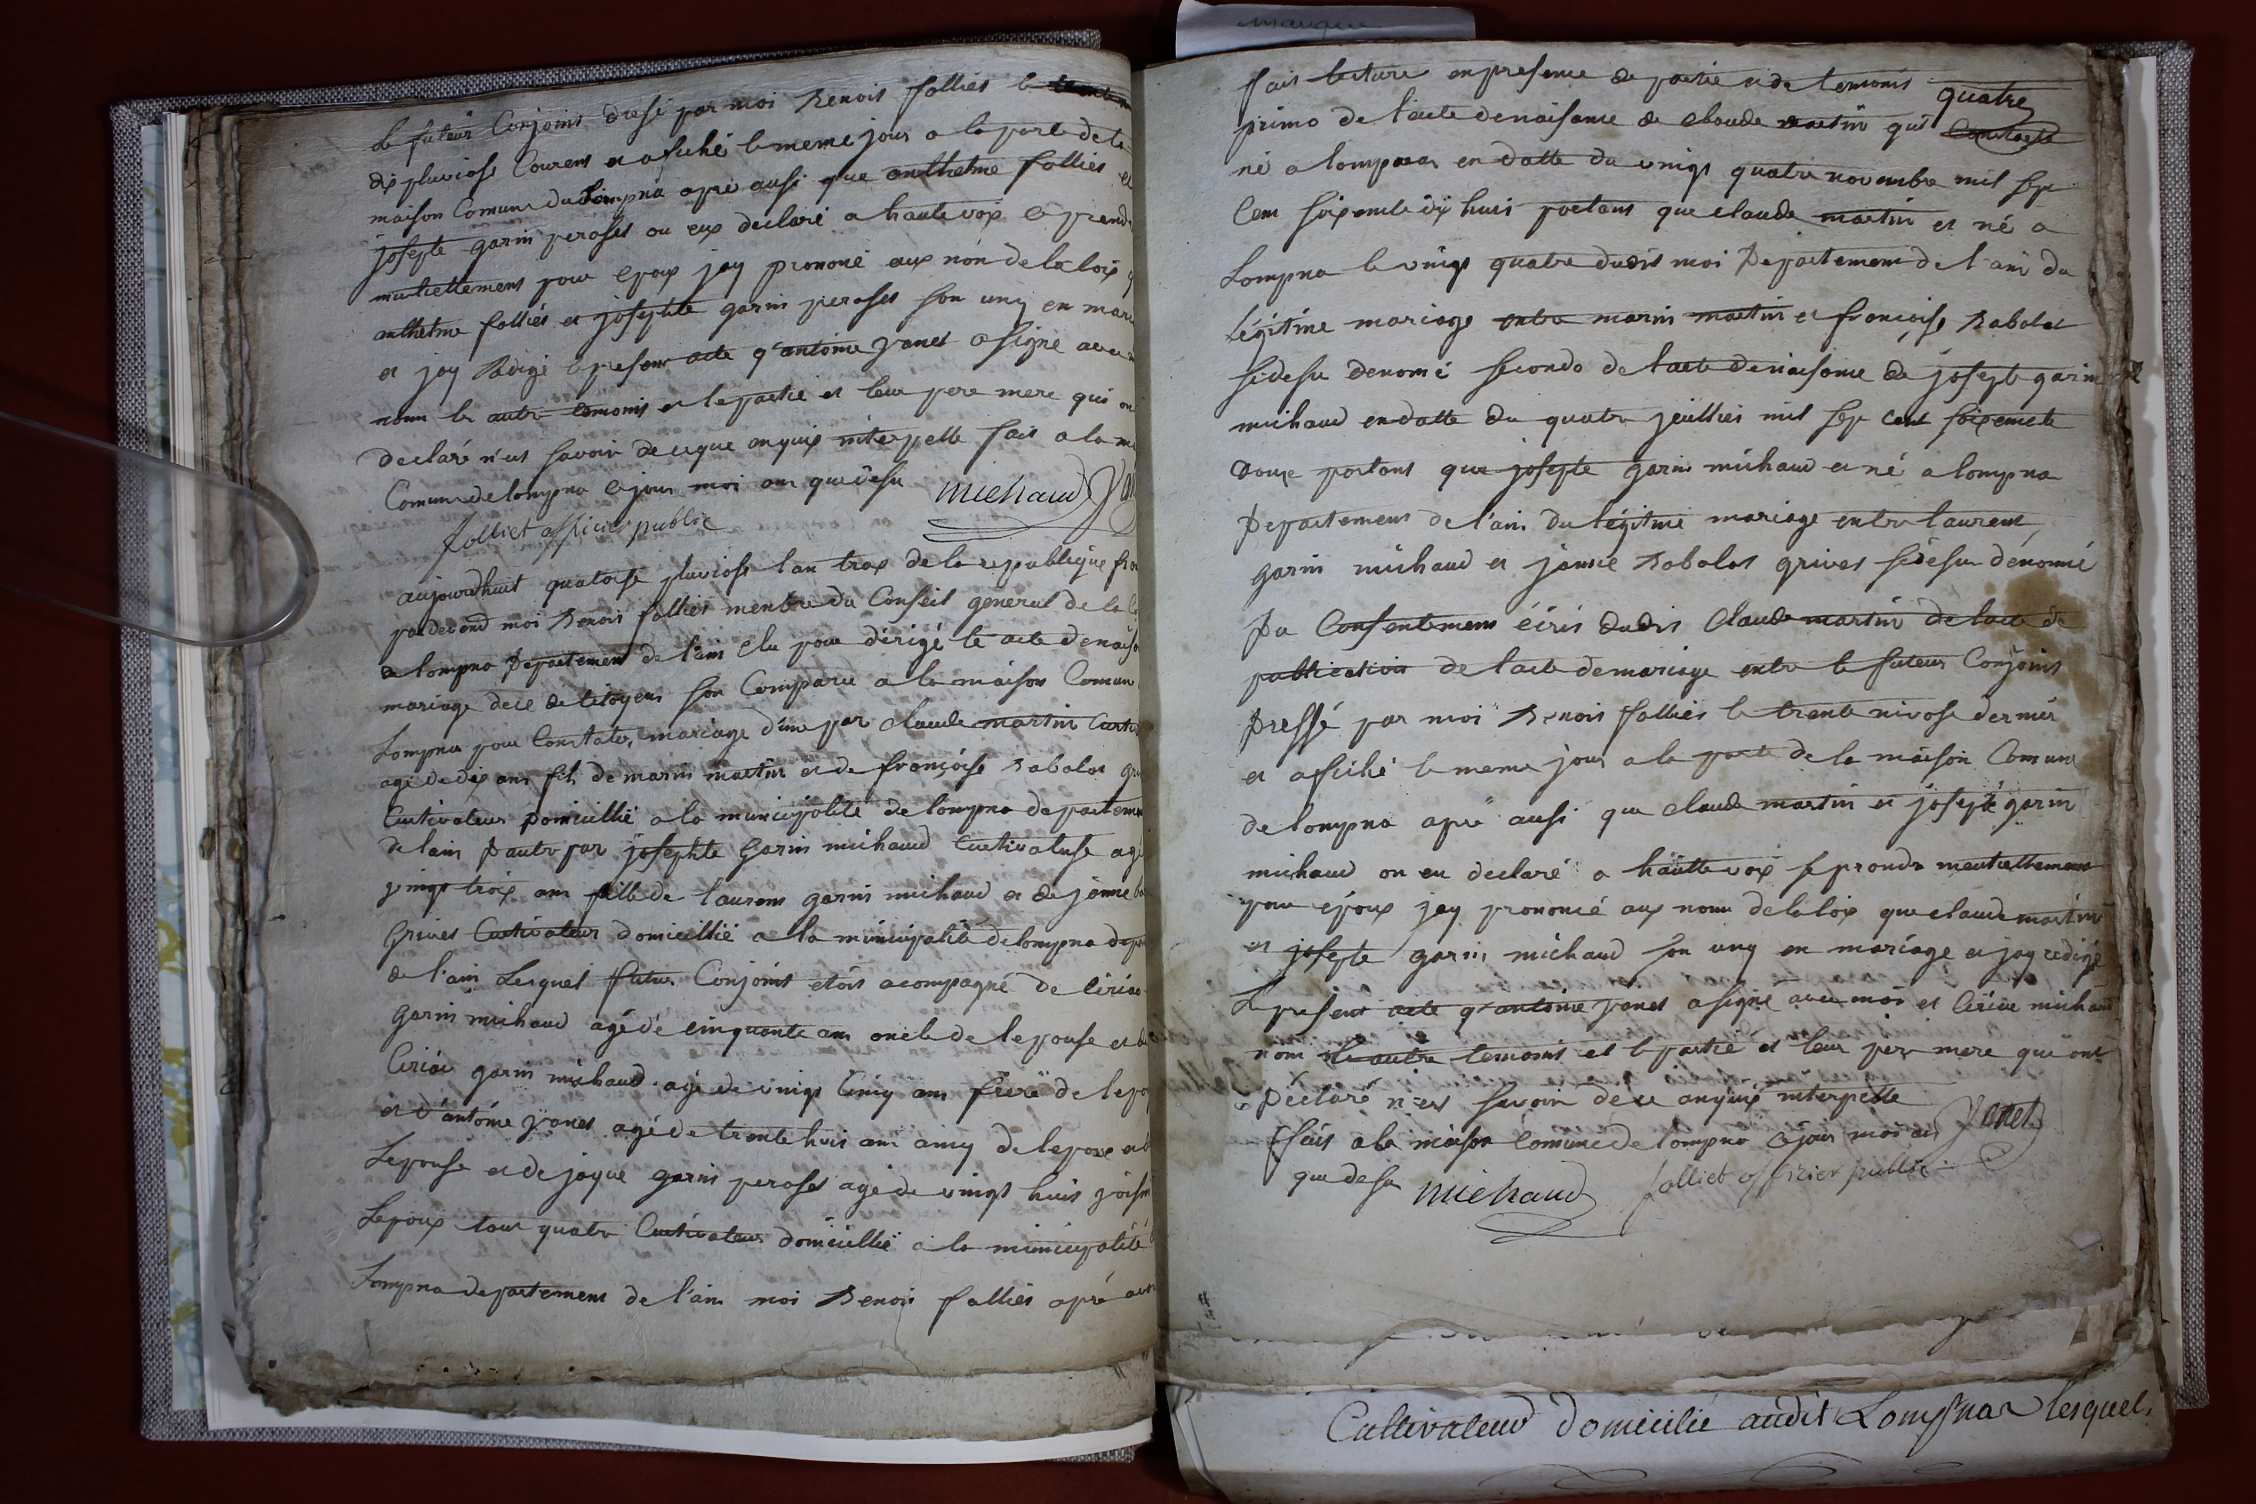 manque
le futeur Conjoins dresé par moi Benois folliés le
dix pluviose Courens et afiché le meme jour a la porte de la
maison Comune du Lompna aprè ausi que anthelme folliés et
josepte garin peroses on eux declaré a haute voix se prendre
mutiellemens pour epoux jay prononcé aux nón de la loix
anthelme folliés et josephte garin peroses son uny en mari
et jay Rédigé le presens acte q'antoine yanes a signé avec
nom le autre temoins et le partié et leur pere mere qui on
declaré n'es savoir de ce que anquix interpellé fais a la
Comune de lompna ce jour moi an que desu michaud
folliet officier public
aujourdhuit quatorse pluviose l'an trox de la republique
pardevend moi Benois folliés menbre du Conseil general de la
de lompna Departemens de l'ain elu pour dirigé le acte de
mariage dece de citoyens son Comparu a la maison Comun
Lompna pour Constater mariage d'une par claude martin
agé de dix ans fils de marin martin et de francoise Rabolot
Cultivateur Domicillié a la municipalité de lompna departemen
de lain Dautr par josephte Garin michaud Cultivateuse
vingt troix ans fille de laurens garin michaud et de janne
Grives Cultivateur domicillié a la municipalité de lompna
de l'ain Lesquel futeur Conjoins etois acompagné de
garin michaud agé de cinquante ans oncle de lepouse et
Ciriac garin michaud agé de vingt Cinq ans frere de
et d'antoine yanes agé de trente huis ans amy de lepoux
Lepouse et de jaque garin peroses agé de vingt huis
Lepoux tous quatre Cultivateur domicillié a la municipalité
Lompna departemens de l'ain moi Benois folliés aprè
fais lecture en presence de partie et de temoins quatre
primo de l'acte denaisance de claude martin qui Constaste
né a lompnas en datte du vingt quatre novenbre mil sep
Cens soixente dix huis portans que claude martin et né a
Lompna le vingt quatre dudis moi Departemens de l'ain du
Légitime mariage entre marin martin et francoise Rabolot
sidesu denomé secondo de l'acte denaisance de josepte garin
michaud en datte du quatre jeullies mil sep cent soixente
Douze portans que josepte garin michaud et né a lompna
Departemens de l'ain du légitime mariage entre laurent
garin michaud et janne Rabolot grives sidesu dénomé
Du Consentemens écris dudis Claude martin de lacte de
publication de l'acte de mariage entre le futeur Conjoins
Dressé par moi Benois folliés le trente nivose dernier
et affiché le meme jour a la porte de la maison Comune
de lompna aprè ausi que claude martin et josepte garin
michaud on eu declaré a haütte voix se prendre meutiellemens
pour époux jay prononcé aux nom de la loix que claude martin
et josepte garin michaud son uny en mariage et jay redigé
Le presens acte q'antoine yanes a signé avec moi et Ciriac michaud
nom le autre temoins et le partié et leur pere mere qui ont
Déclaré n'es savoir de ce anquix interpellé
ffais a la maison Comune de lompna ce jour moi an yanet
que desu michaud folliet officier public
Cultivateur domicilié audit Lompnas lesquel